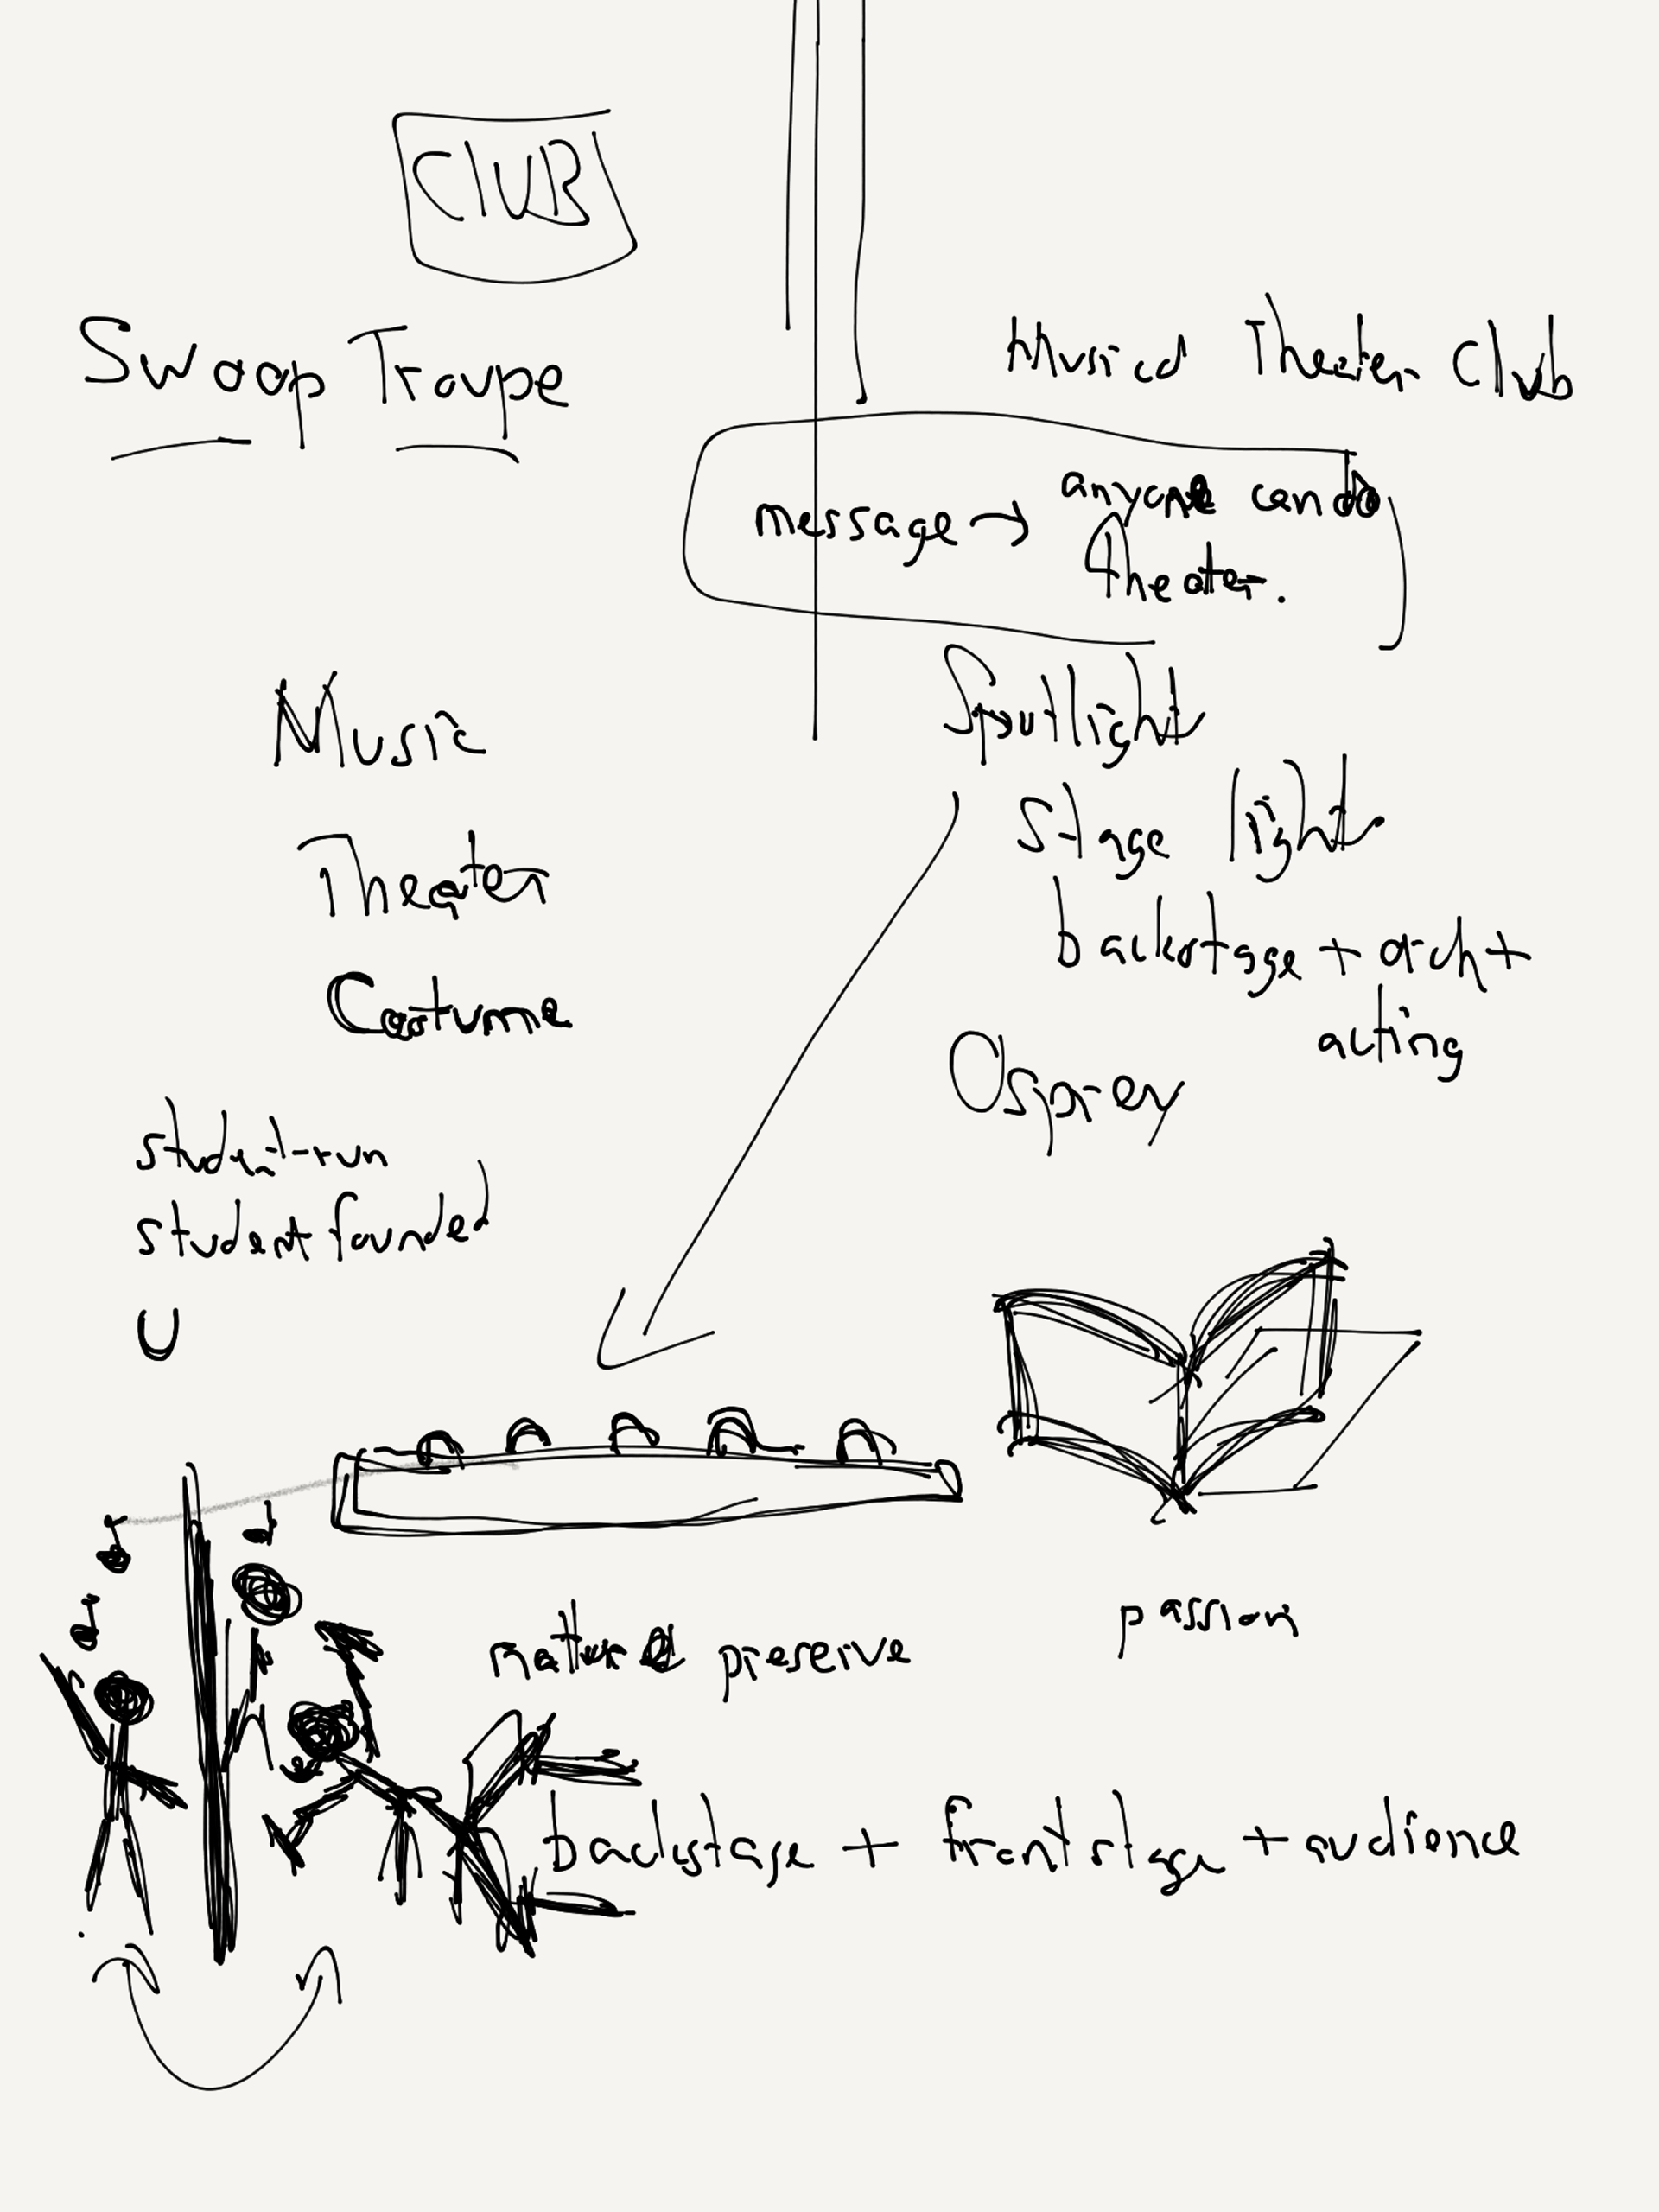 CLUB
Swoop Troupe
Musical Theater Club
message → anyone can do
theater.
Music
Theater
Costume
Spotlight
stage light
backstage + orch +
acting
Osprey
student-run
student founded
U
passion
preserve
backstage + frontstage + audience